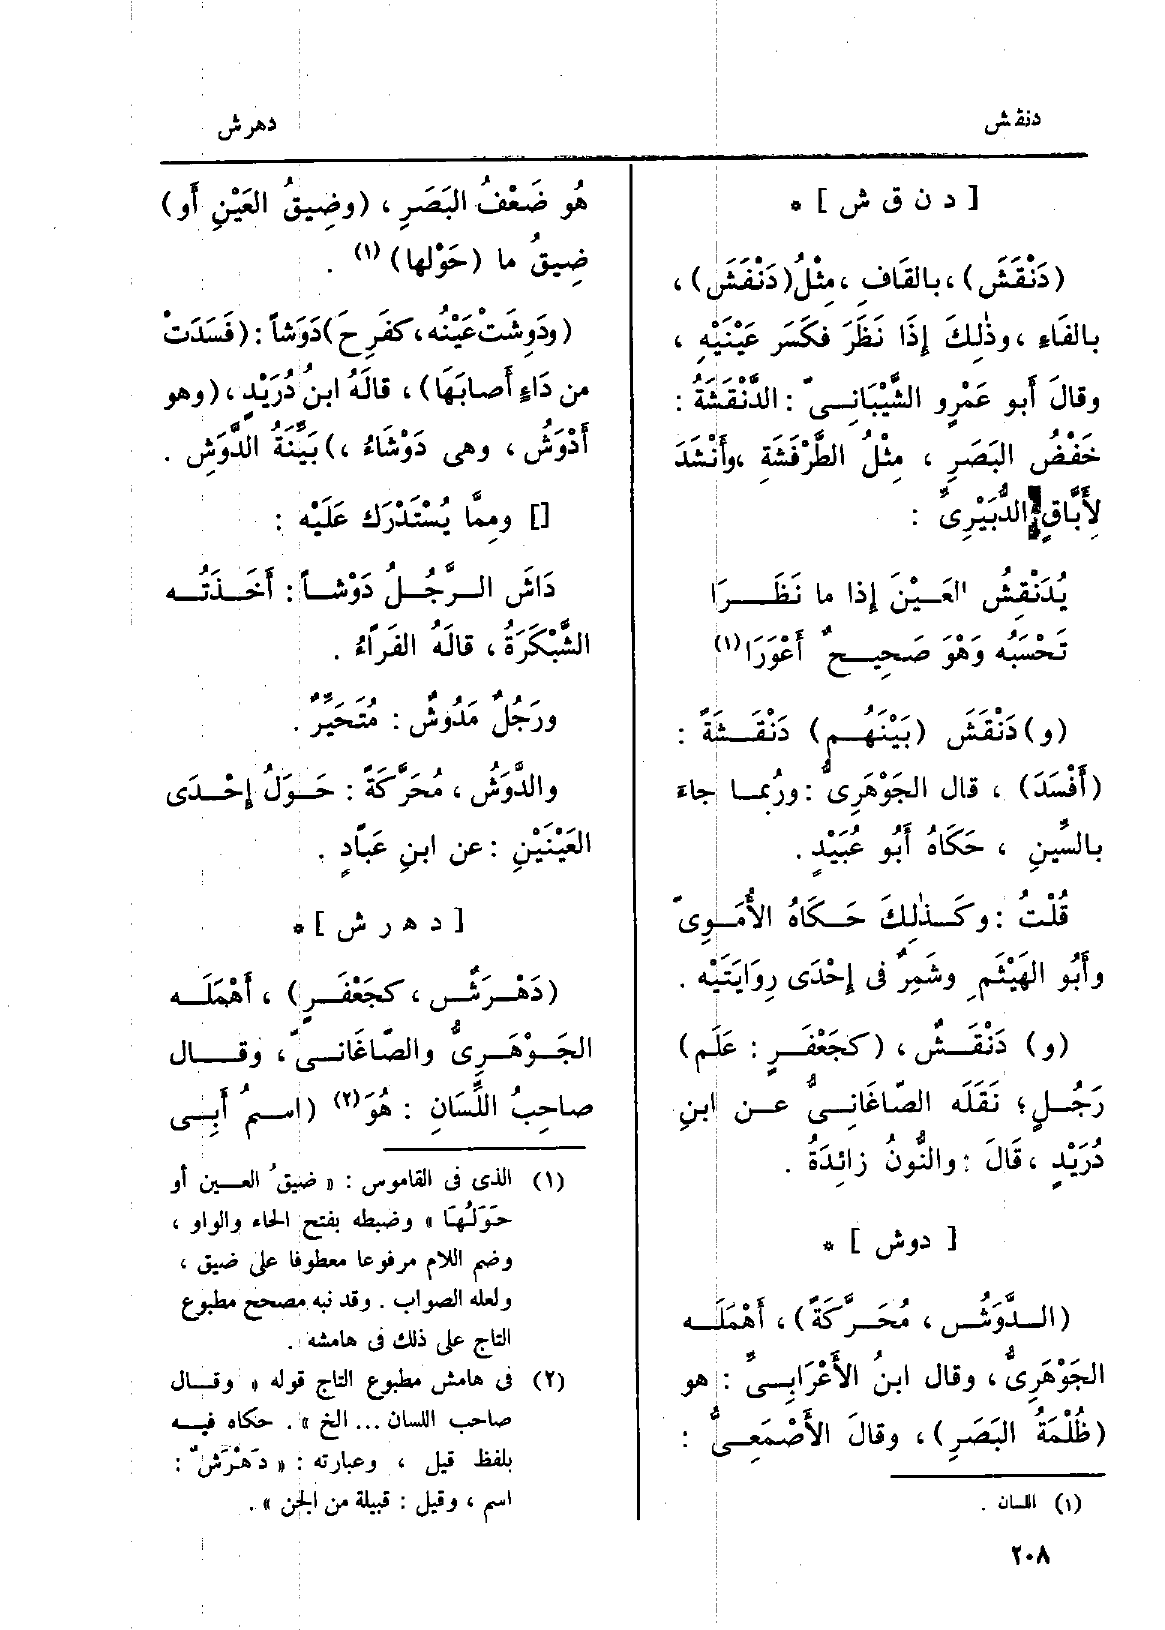 دنقش
دهرش
[ د ن ق ش ] *
(دَنْقَشَ)، بالقَافِ ، مِثْلُ (دَنْفَشَ) ،
بالفَاءِ ، وذٰلِكَ إِذَا نَظَرَ فكَسَر عَيْنَيْهِ ،
وقالَ أَبو عَمْرٍو الشَّيْبَانِيّ : الدَّنْقَشَةُ :
خَفْضُ البَصَرِ ، مِثْلُ الطَّرْفَشَةِ ، وأَنْشَدَ
لِأَبَّاقٍ الدُّبَيْرِيِّ :
يُدَنْقِشُ العَيْنَ إِذا ما نَظَرَا
تَحْسَبُه وَهْوَ صَحِيحٌ أَعْوَرَا(١)
(و) دَنْقَشَ (بَيْنَهُم) دَنْقَشَةً :
(أَفْسَدَ) ، قال الجَوْهَرِىُّ : ورُبما جاءَ
بالسِّينِ ، حَكَاهُ أَبُو عُبَيْدٍ .
قُلْتُ : وكَذٰلِكَ حَكَاهُ الأُمَوِىّ
وأَبُو الهَيْثَمِ وشَمِرٌ فى إِحْدَى رِوَايَتَيْه .
(و) دَنْقَشٌ ، (كجَعْفَرٍ : عَلَم)
رَجُلٍ ؛ نَقَلَه الصّاغَانِىُّ عن ابنِ
دُرَيْدٍ ، قَالَ : والنُّونُ زائِدَةُ .
[ دوش ] *
(الدَّوَشُ ، مُحَرَّكَةً) ، أَهْمَلَه
الجَوْهَرِىُّ ، وقال ابنُ الأَعْرَابِىِّ : هو
(ظُلْمَةُ البَصَرِ) ، وقالَ الأَصْمَعِىُّ :
(١) اللسان .
٢٠٨
هُو ضَعْفُ البَصَرِ ، (وضِيقُ العَيْنِ أَو)
ضِيقُ ما (حَوْلها) (١) .
(ودَوِشَتْ عَيْنُه ، كفَرِحَ) دَوَشاً : (فَسَدَتْ
من دَاءٍ أَصابَهَا) ، قالَهُ ابنُ دُرَيْدٍ ، (وهو
أَدْوَشُ ، وهى دَوْشَاءُ ،) بَيِّنَةُ الدَّوَشِ .
[] ومِمَّا يُسْتَدْرَك عَلَيْه :
دَاشَ الرَّجُلُ دَوْشاً : أَخَذَتْه
الشَّبْكَرَةُ ، قالَهُ الفَرّاءُ .
ورَجُلٌ مَدُوشٌ : مُتَحَيِّرٌ .
والدَّوَشُ ، مُحَرَّكَةً : حَوَلُ إِحْدَى
العَيْنَيْنِ : عن ابنِ عَبّادٍ .
[ د هـ ر ش ] *
(دَهْرَشٌ ، كجَعْفَرٍ) ، أَهْمَلَه
الجَوْهَرِىُّ والصّاغَانىّ ، وقال
صاحِبُ اللِّسَانِ : هُوَ (٢) (اسمُ أَبِى
(١) الذى فى القاموس : « ضيقُ العين أو
حَوَلُهَا » وضبطه بفتح الحاء والواو ،
وضم اللام مرفوعا معطوفا على ضيق ،
ولعله الصواب . وقد نبه مصحح مطبوع
التاج على ذلك فى هامشه .
(٢) فى هامش مطبوع التاج قوله « وقال
صاحب اللسان ... الخ » . حكاه فيه
بلفظ قيل ، وعبارته : « دَهْرَشٌ :
اسم ، وقيل : قبيلة من الجن » .